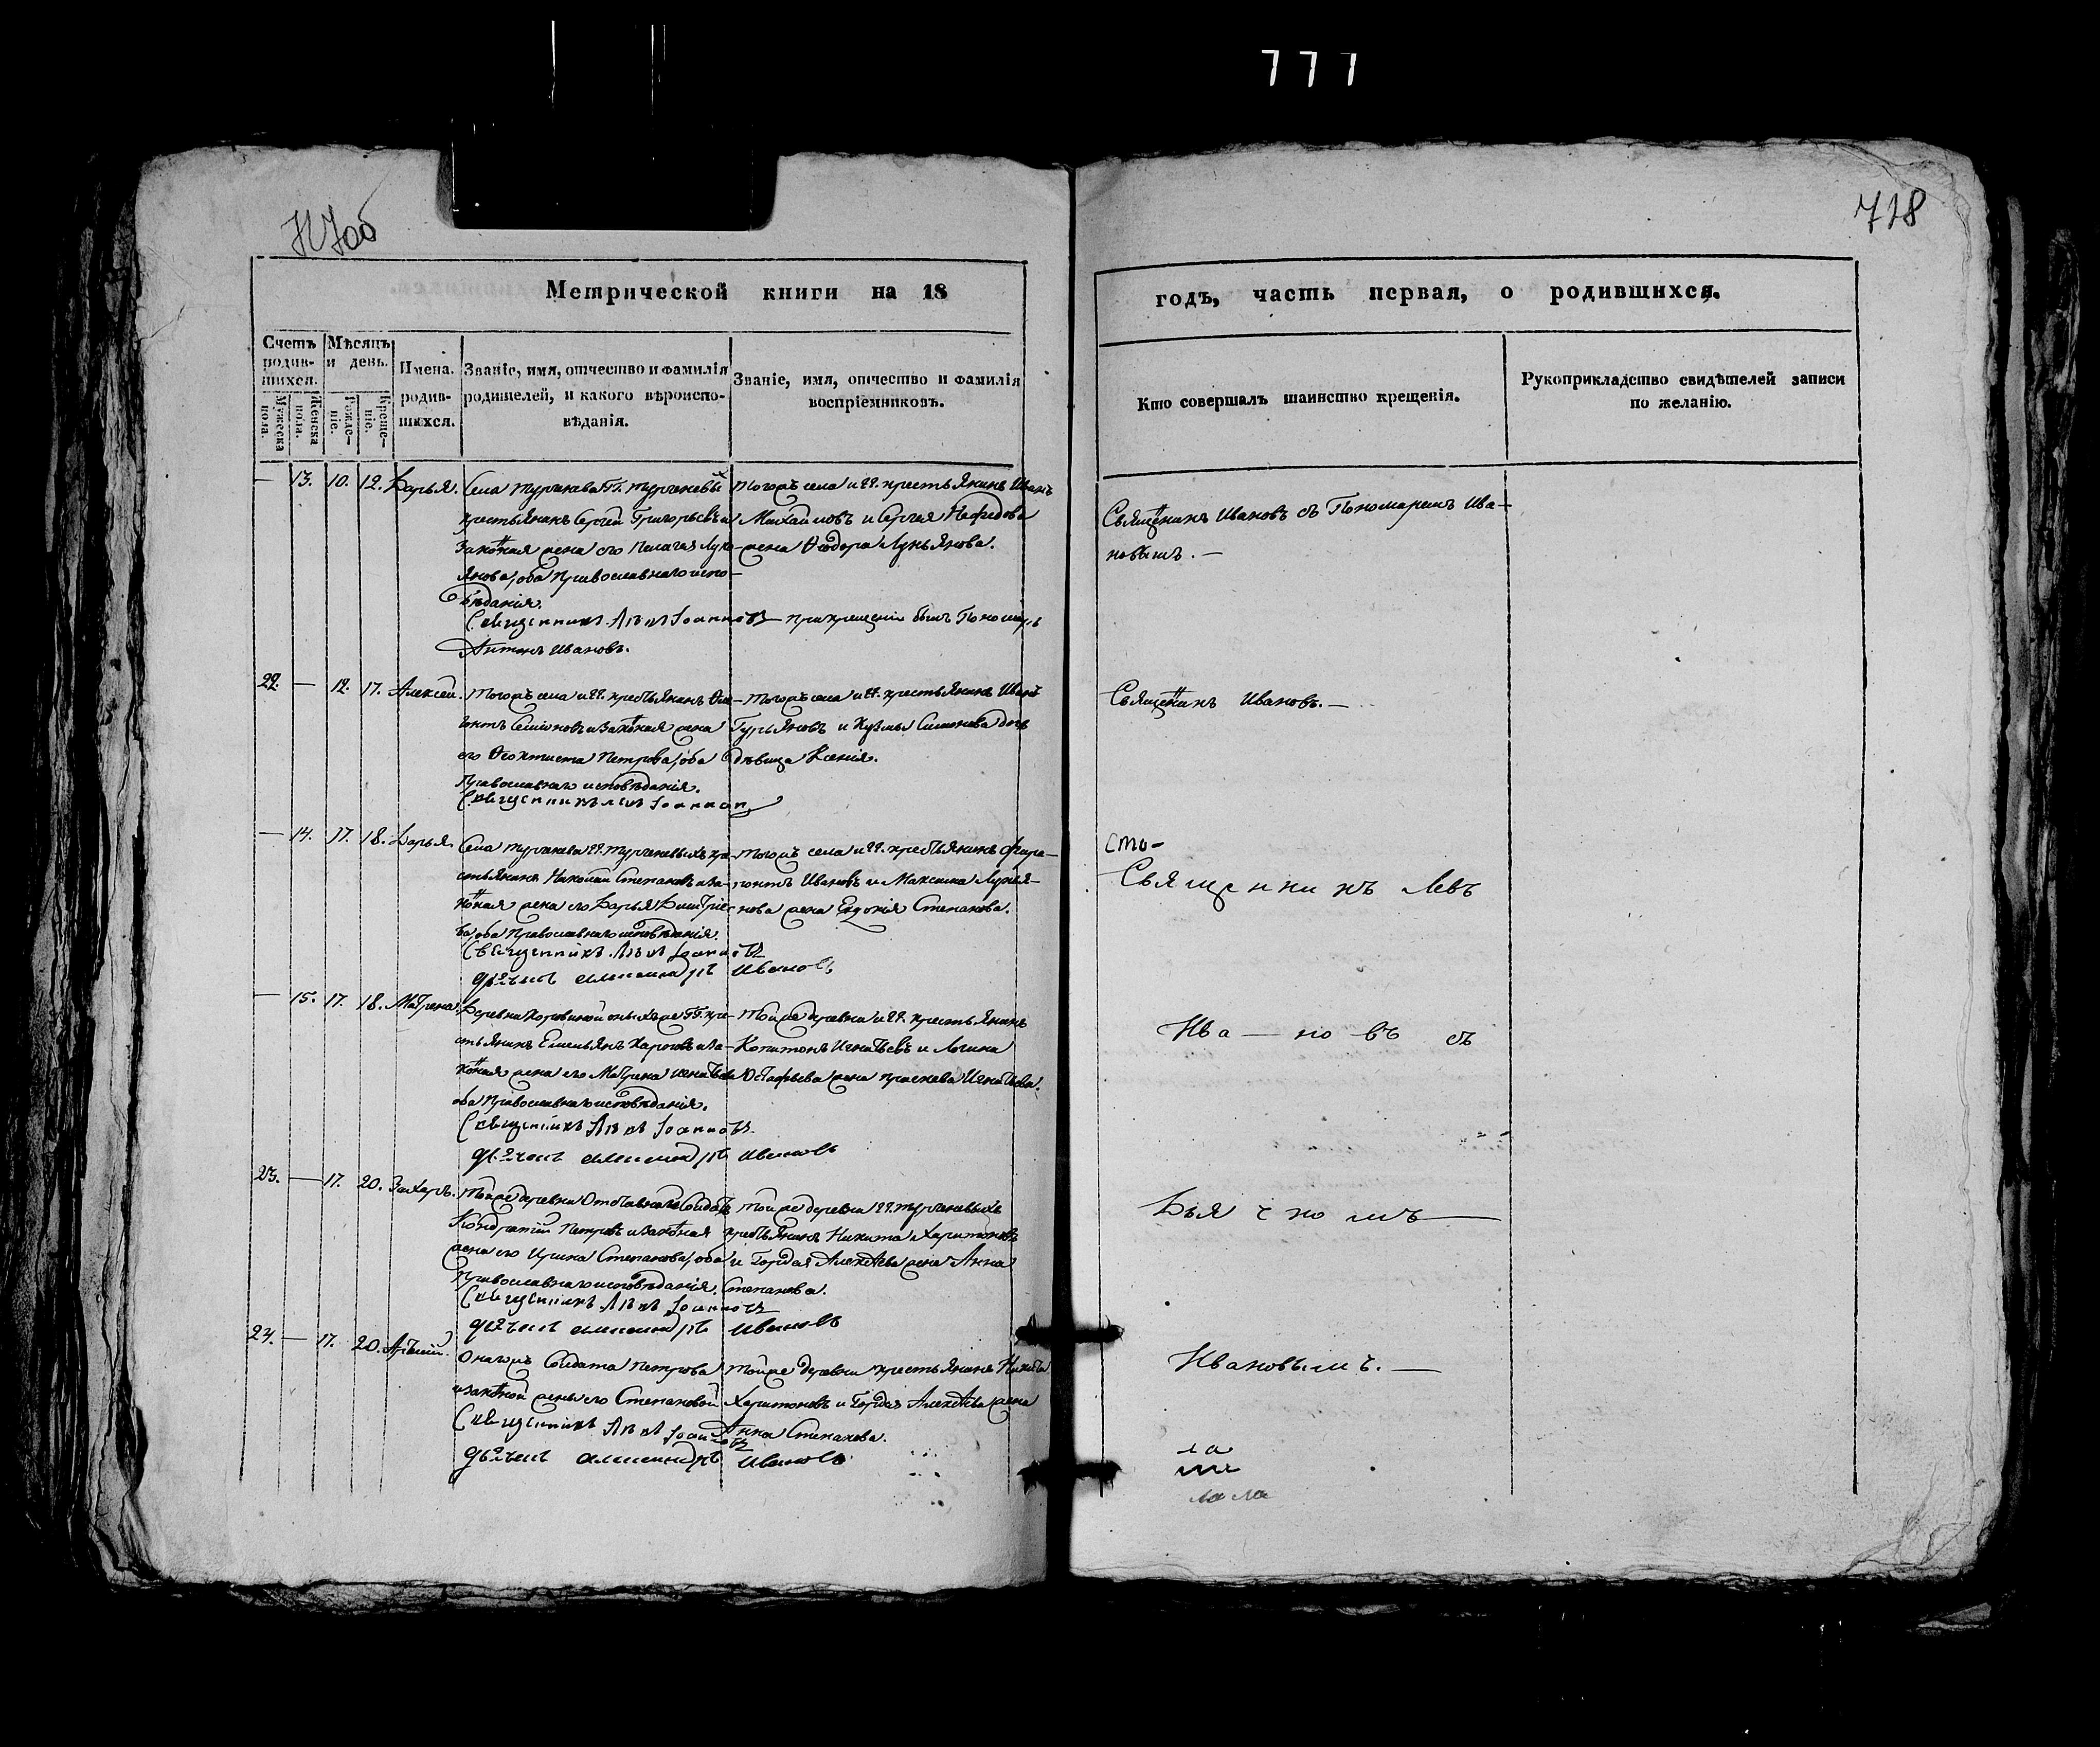 777
718
Метрической книги на 18
годъ, часть первая, о родившихся.
Счетъ родившихся.
Мужеска пола.
Женска пола.
Мѣсяцъ и день.
Рожденіе.
Крещеніе.
Имена родившихся.
Званіе, имя, отчество и фамилія
родителей, и какого вѣроиспо-
вѣданія.
Званіе, имя, отчество и фамилія
воспріемниковъ.
Кто совершалъ таинство крещенія.
Рукоприкладство свидѣтелей записи
по желанію.
— 13. 10. 12. Дарья.
Села Тургенева Гг. Тургеневы
крестьянинъ Сергей Григорьевъ и
законная жена его Пелагея Лукь-
янова, оба православнаго испо-
вѣданія.
Священникъ Левъ Іоанновъ при крещеніи былъ Пономарь
Антонъ Ивановъ.
Тогожъ села и Гг. крестьянинъ Иванъ
Михайловъ и Сергея Нефедова
жена Ѳеодора Лукьянова.
Священникъ Ивановъ съ Пономаремъ Ива-
новымъ. —
22. — 12. 17. Алексей.
Тогожъ села и Гг. крестьянинъ
Семіоновъ и законная жена
его Ѳеоктиста Петрова, оба
православнаго исповѣданія.
Священникъ Левъ Іоаннов
Тогожъ села и Гг. крестьянинъ Иванъ
Гурьяновъ и Кузмы Симонова дочь
дѣвица Ксенія.
Священникъ Ивановъ. —
— 14. 17. 18. Дарья.
Села Тургенева Гг. Тургеневыхъ кре-
стьянинъ Николай Степановъ и за-
конная жена его Дарья Дмитріе-
ва, оба православнаго исповѣданія.
Священникъ Левъ Іоанновъ
дьячекъ Александръ Ивановъ
Тогожъ села и Гг. крестьянинъ Фера-
понтъ Ивановъ и Максима Лукья-
нова жена Евдокія Степанова.
сто-
Священникъ Левъ
— 15. 17. 18. Матрена.
Деревни Коровиной оныхъ же Гг. кре-
стьянинъ Емельянъ Карповъ и за-
конная жена его Матрена Игнатьева
оба православнаго исповѣданія.
Священникъ Левъ Іоанновъ
дьячекъ Александръ Ивановъ
Тойже деревни и Гг. крестьянинъ
Капитонъ Игнатьевъ и Логина
Остафьева жена Праскева Игнатьева.
Ива — но въ съ
23. — 17. 20. Захаръ.
Тойже деревни Отставной Солдатъ
Кондратій Петровъ и законная
жена его Ирина Степанова, оба
православнаго исповѣданія.
Священникъ Левъ Іоанновъ
дьячекъ Александръ Ивановъ
Тойже деревни Гг. Тургеневыхъ
крестьянинъ Никита Харитоновъ
и Гордея Алексѣева жена Анна
Степанова.
Дья ч ко мъ
24. — 17. 20.
Онагожъ Солдата Петрова
и законной жены его Степановой
Священникъ Левъ Іоанновъ
дьячекъ Александръ Ивановъ
Тойже деревни крестьянинъ Никита
Харитоновъ и Гордея Алексѣева жена
Анна Степанова.
Ивановымъ. —